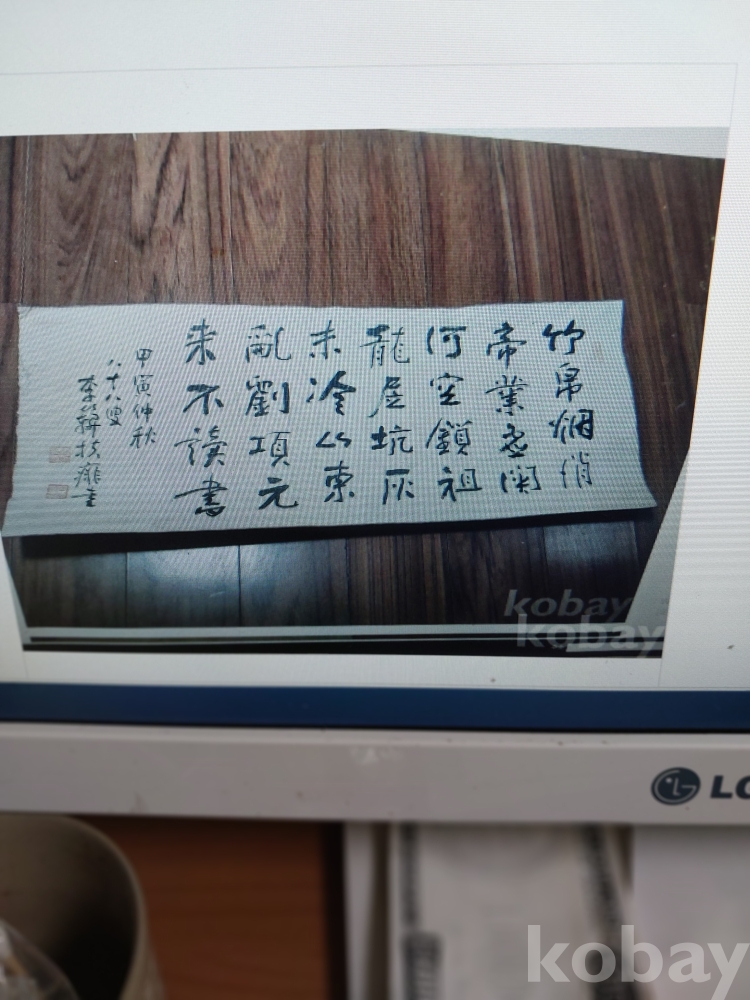 竹帛烟消
帝業虛関
河空鎖祖
龍居坑灰
未冷山東
亂劉項元
来不讀書
甲寅仲秋
八十八叟
李
kobay
kobay
LG
kobay